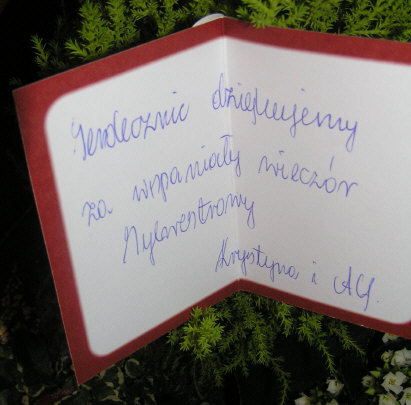 Serdecznie dziękujemy
za wspaniały wieczór
Sylwestrowy
Krystyna i